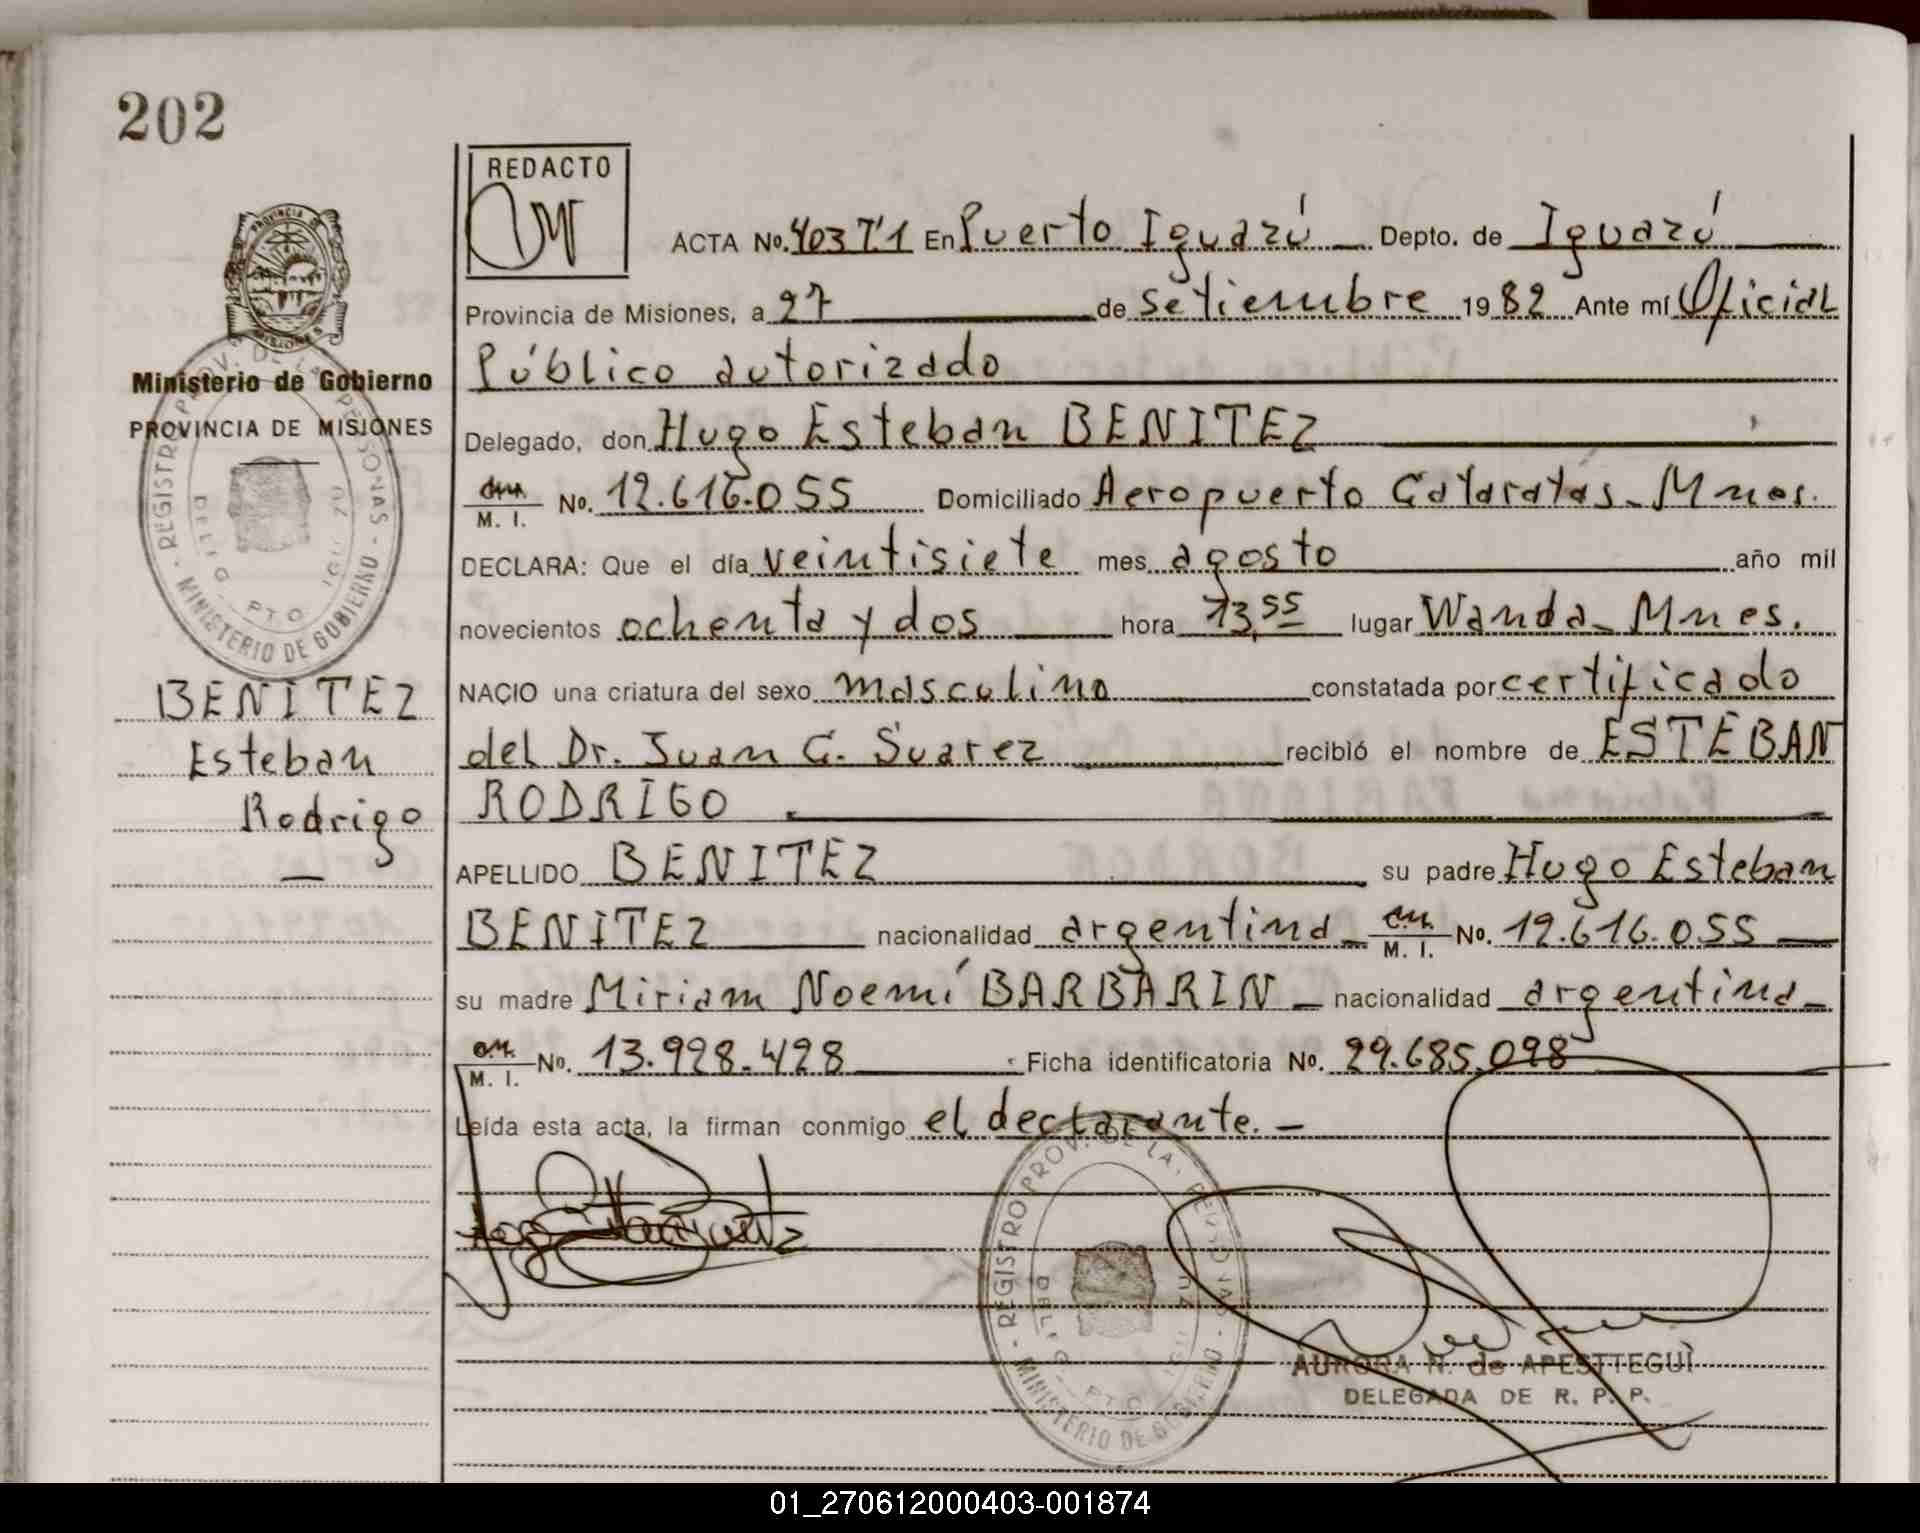 202
REDACTO
ACTA No. 403 T.1 En Puerto Iguazú Depto. de Iguazú
Provincia de Misiones, a 27 de setiembre 1982 Ante mí Oficial
Público autorizado
Delegado, don Hugo Esteban BENITEZ
M. I. No. 12.616.055 Domiciliado Aeropuerto Cataratas - Mnes.
DECLARA: Que el día veintisiete mes agosto año mil
novecientos ochenta y dos hora 13,55 lugar Wanda - Mnes.
NACIO una criatura del sexo masculino constatada por certificado
del Dr. Juan C. Suarez recibió el nombre de ESTEBAN
RODRIGO.
APELLIDO BENITEZ su padre Hugo Esteban
BENITEZ nacionalidad argentina - M. I. No. 12.616.055 -
su madre Miriam Noemí BARBARIN - nacionalidad argentina -
M. I. No. 13.928.428 Ficha identificatoria No. 29.685.098
Leída esta acta, la firman conmigo el declarante. -
PROVINCIA DE MISIONES
Ministerio de Gobierno
PROVINCIA DE MISIONES
REGISTRO PROV. DE LAS PERSONAS - MINISTERIO DE GOBIERNO -
DELEG. PTO. IGUAZU
BENITEZ
Esteban
Rodrigo
-
REGISTRO PROV. DE LAS PERSONAS - MINISTERIO DE GOBIERNO
DELEG. PTO. IGUAZU
AURORA N. de APESTTEGUI
DELEGADA DE R. P. P.
01_270612000403-001874